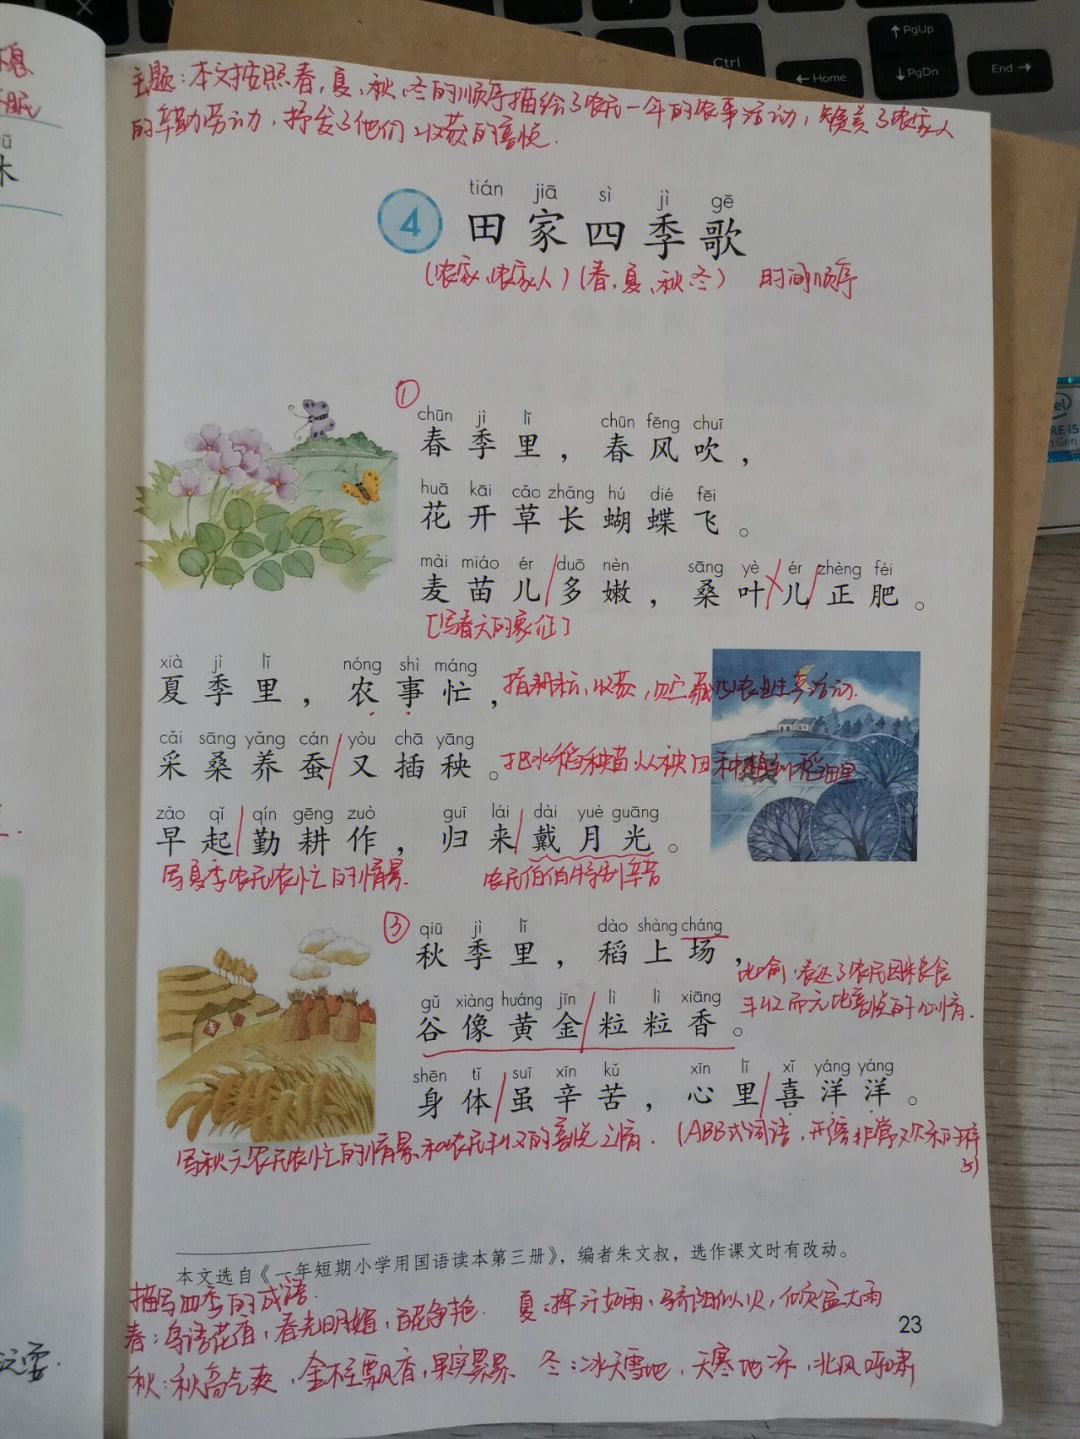 主题：本文按照春、夏、秋、冬的顺序描绘了农民一年的农事活动，赞美了农家人
的辛勤劳动，抒发了他们收获的喜悦.
tián jiā sì jì gē
4 田家四季歌
(农家、农家人)(春、夏、秋、冬) 时间顺序
①
chūn jì lǐ chūn fēng chuī
春季里，春风吹，
huā kāi cǎo zhǎng hú dié fēi
花开草长蝴蝶飞。
mài miáo ér duō nèn sāng yè ér zhèng féi
麦苗儿/多嫩，桑叶儿/正肥。
[写春天的象征]
xià jì lǐ nóng shì máng
夏季里，农事忙，指耕耘、收获、贮藏等农业生产活动.
cǎi sāng yǎng cán yòu chā yāng
采桑养蚕/又插秧。把水稻秧苗从秧田种植到稻田里
zǎo qǐ qín gēng zuò guī lái dài yuè guāng
早起/勤耕作，归来/戴月光。
写夏季农民农忙的情景. 农民伯伯特别辛苦
③
qiū jì lǐ dào shàng cháng
秋季里，稻上场，
比喻，表达了农民因粮食
丰收而无比喜悦的心情.
gǔ xiàng huáng jīn lì lì xiāng
谷像黄金/粒粒香。
shēn tǐ suī xīn kǔ xīn lǐ xǐ yáng yáng
身体/虽辛苦，心里/喜洋洋。
写秋天农民农忙的情景和农民丰收的喜悦之情. (ABB式词语，形容非常欢乐的样
子)
本文选自《一年短期小学用国语读本第三册》，编者朱文叔，选作课文时有改动。
描写四季的成语.
春：鸟语花香，春光明媚，百花争艳. 夏：挥汗如雨，骄阳似火，倾盆大雨
23
秋：秋高气爽，金桂飘香，果实累累 冬：冰天雪地，天寒地冻，北风呼啸
Ctrl
Home
PgUp
PgDn
End